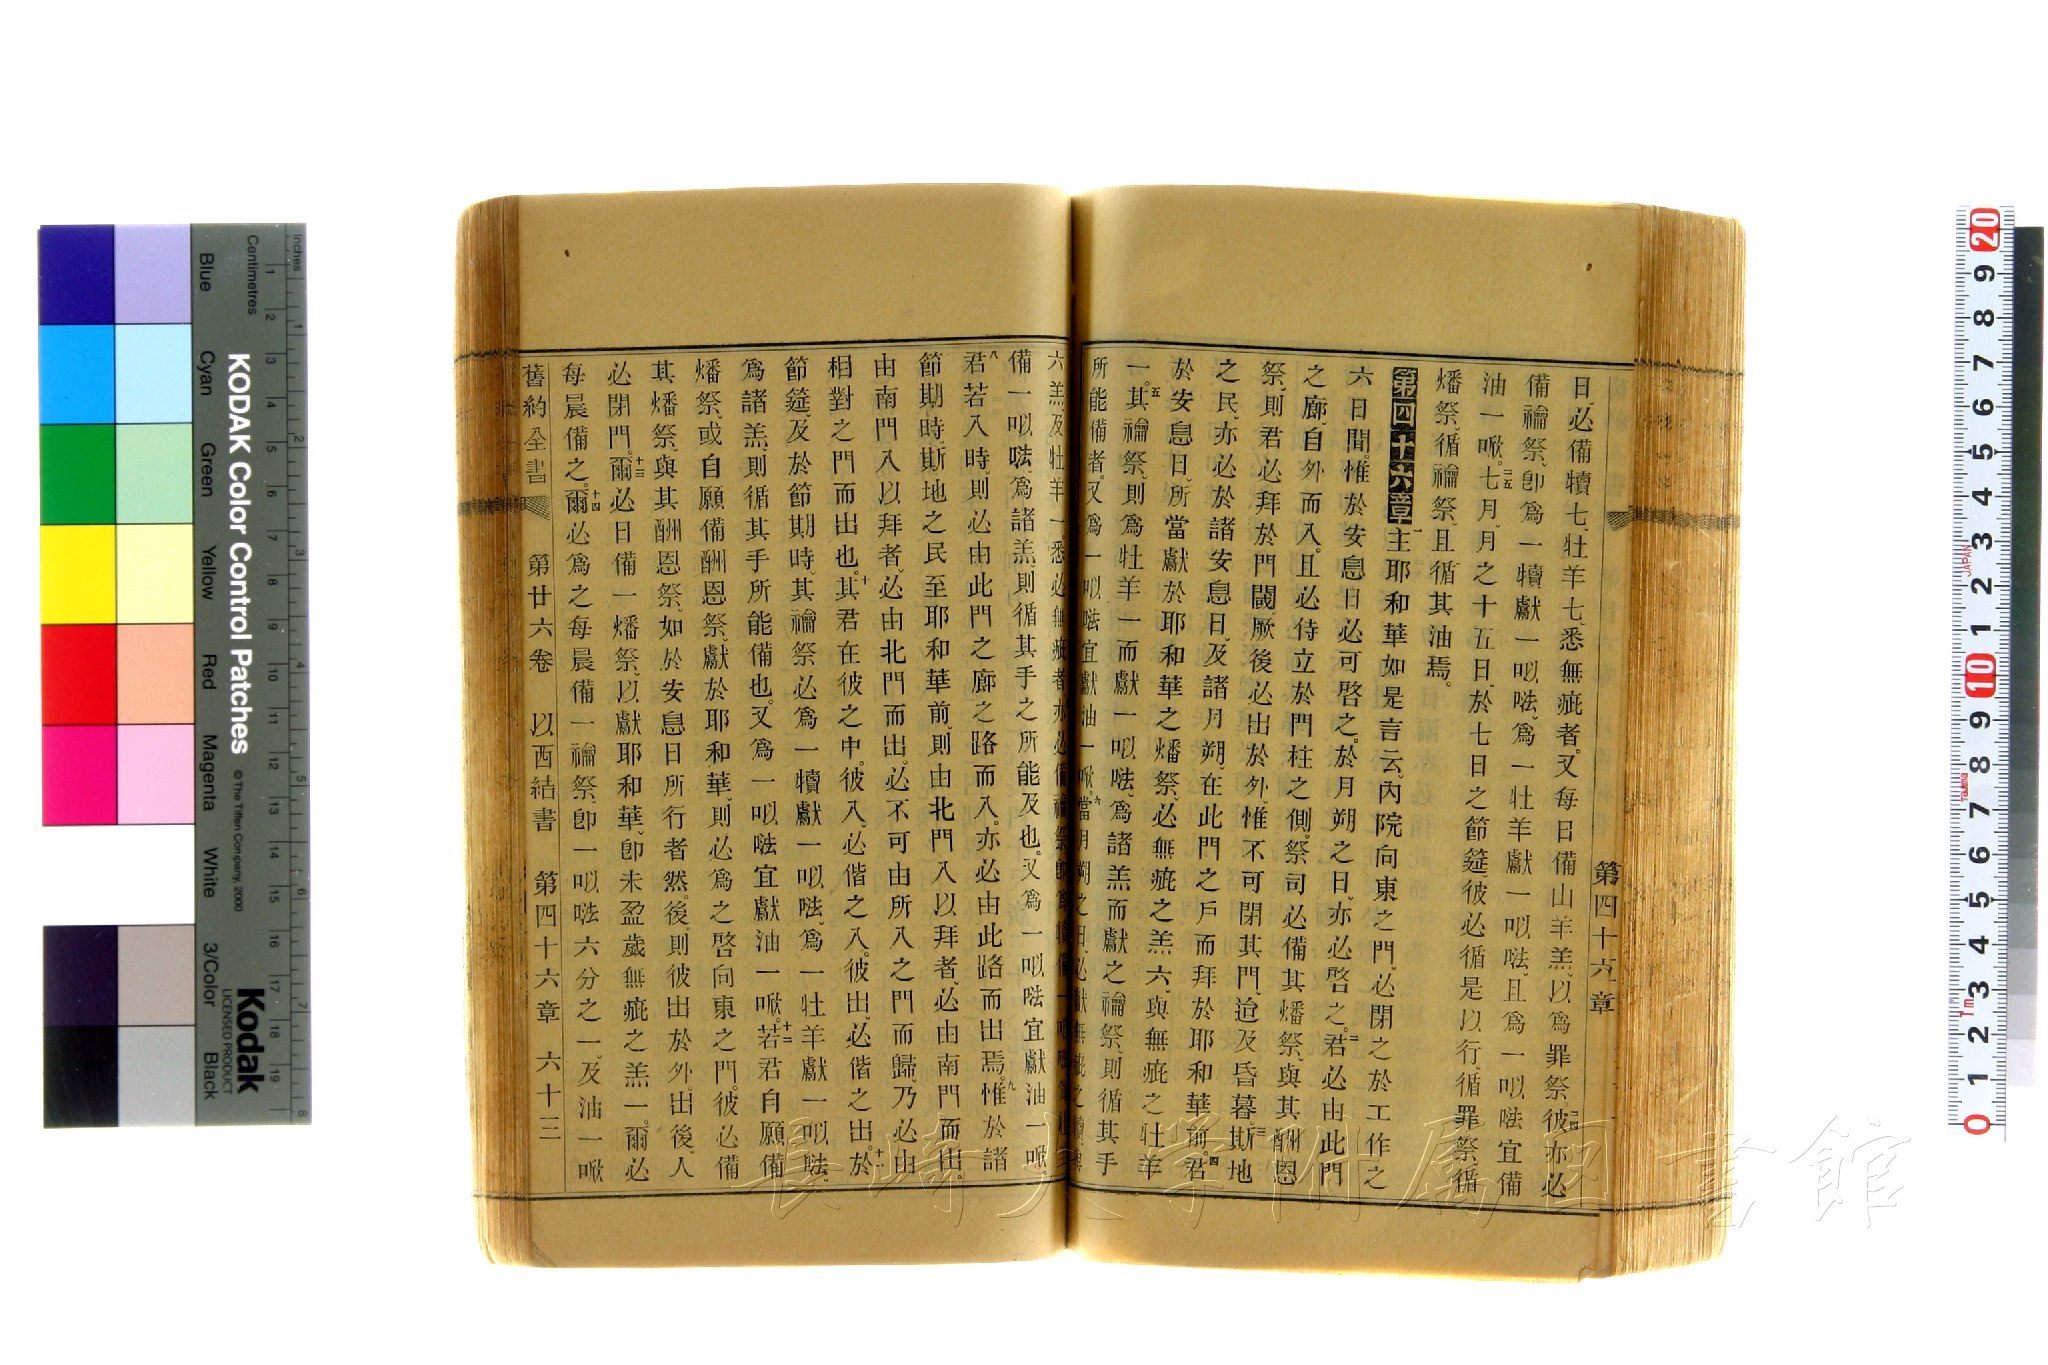 日必備犢七、牡羊七、悉無疵者。又每日備山羊羔、以爲罪祭。二四彼亦必
備禴祭、卽爲一犢獻一㕥㗒、爲一牡羊獻一㕥㗒、且爲一㕥㗒宜備
油一㗭。二五七月、月之十五日、於七日之節筵、彼必循是以行、循罪祭、循
燔祭、循禴祭、且循其油焉。
第四十六章一主耶和華如是言云、內院向東之門、必閉之於工作之
六日間、惟於安息日必可啓之。於月朔之日、亦必啓之。二君必由此門
之廊、自外而入。且必侍立於門柱之側。祭司必備其燔祭、與其酬恩
祭、則君必拜於門閾、厥後必出於外、惟不可閉其門、迨及昏暮。三斯地
之民、亦必於諸安息日、及諸月朔、在此門之戶而拜於耶和華前。四君
於安息日、所當獻於耶和華之燔祭、必無疵之羔六、與無疵之牡羊
一。五其禴祭、則爲牡羊一而獻一㕥㗒、爲諸羔而獻之禴祭、則循其手
所能備者。又爲一㕥㗒宜獻油一㗭。六當月朔之日、必獻無疵之犢、與
六羔、及牡羊一、悉必無疵者、亦必備禴祭、卽爲
備一㕥㗒、爲諸羔、則循其手之所能及也。又爲一㕥㗒宜獻油一㗭。
八君若入時、則必由此門之廊之路而入。亦必由此路而出焉。九惟於諸
節期時、斯地之民至耶和華前、則由北門入以拜者、必由南門而出。
由南門入以拜者、必由北門而出。必不可由所入之門而歸、乃必由
相對之門而出也。十其君在彼之中。彼入、必偕之入。彼出、必偕之出。十一於
節筵、及於節期時、其禴祭必爲一犢獻一㕥㗒、爲一牡羊獻一㕥㗒、
爲諸羔、則循其手所能備也。又爲一㕥㗒宜獻油一㗭。十二若君自願備
燔祭、或自願備酬恩祭、獻於耶和華、則必爲之啓向東之門。彼必備
其燔祭、與其酬恩祭、如於安息日所行者然。後、則彼出於外、出後、人
必閉門。十三爾必日備一燔祭、以獻耶和華、卽未盈歲無疵之羔一。爾必
每晨備之。十四爾必爲之每晨備一禴祭、卽一㕥㗒六分之一、及油一㗭
舊約全書 第廿六卷 以西結書 第四十六章 六十三
第四十六章
長崎大学附属図書館
Inches
Centimetres
KODAK Color Control Patches
© The Tiffen Company, 2000
Kodak
LICENSED PRODUCT
Blue
Cyan
Green
Yellow
Red
Magenta
White
3/Color
Black
JAPAN